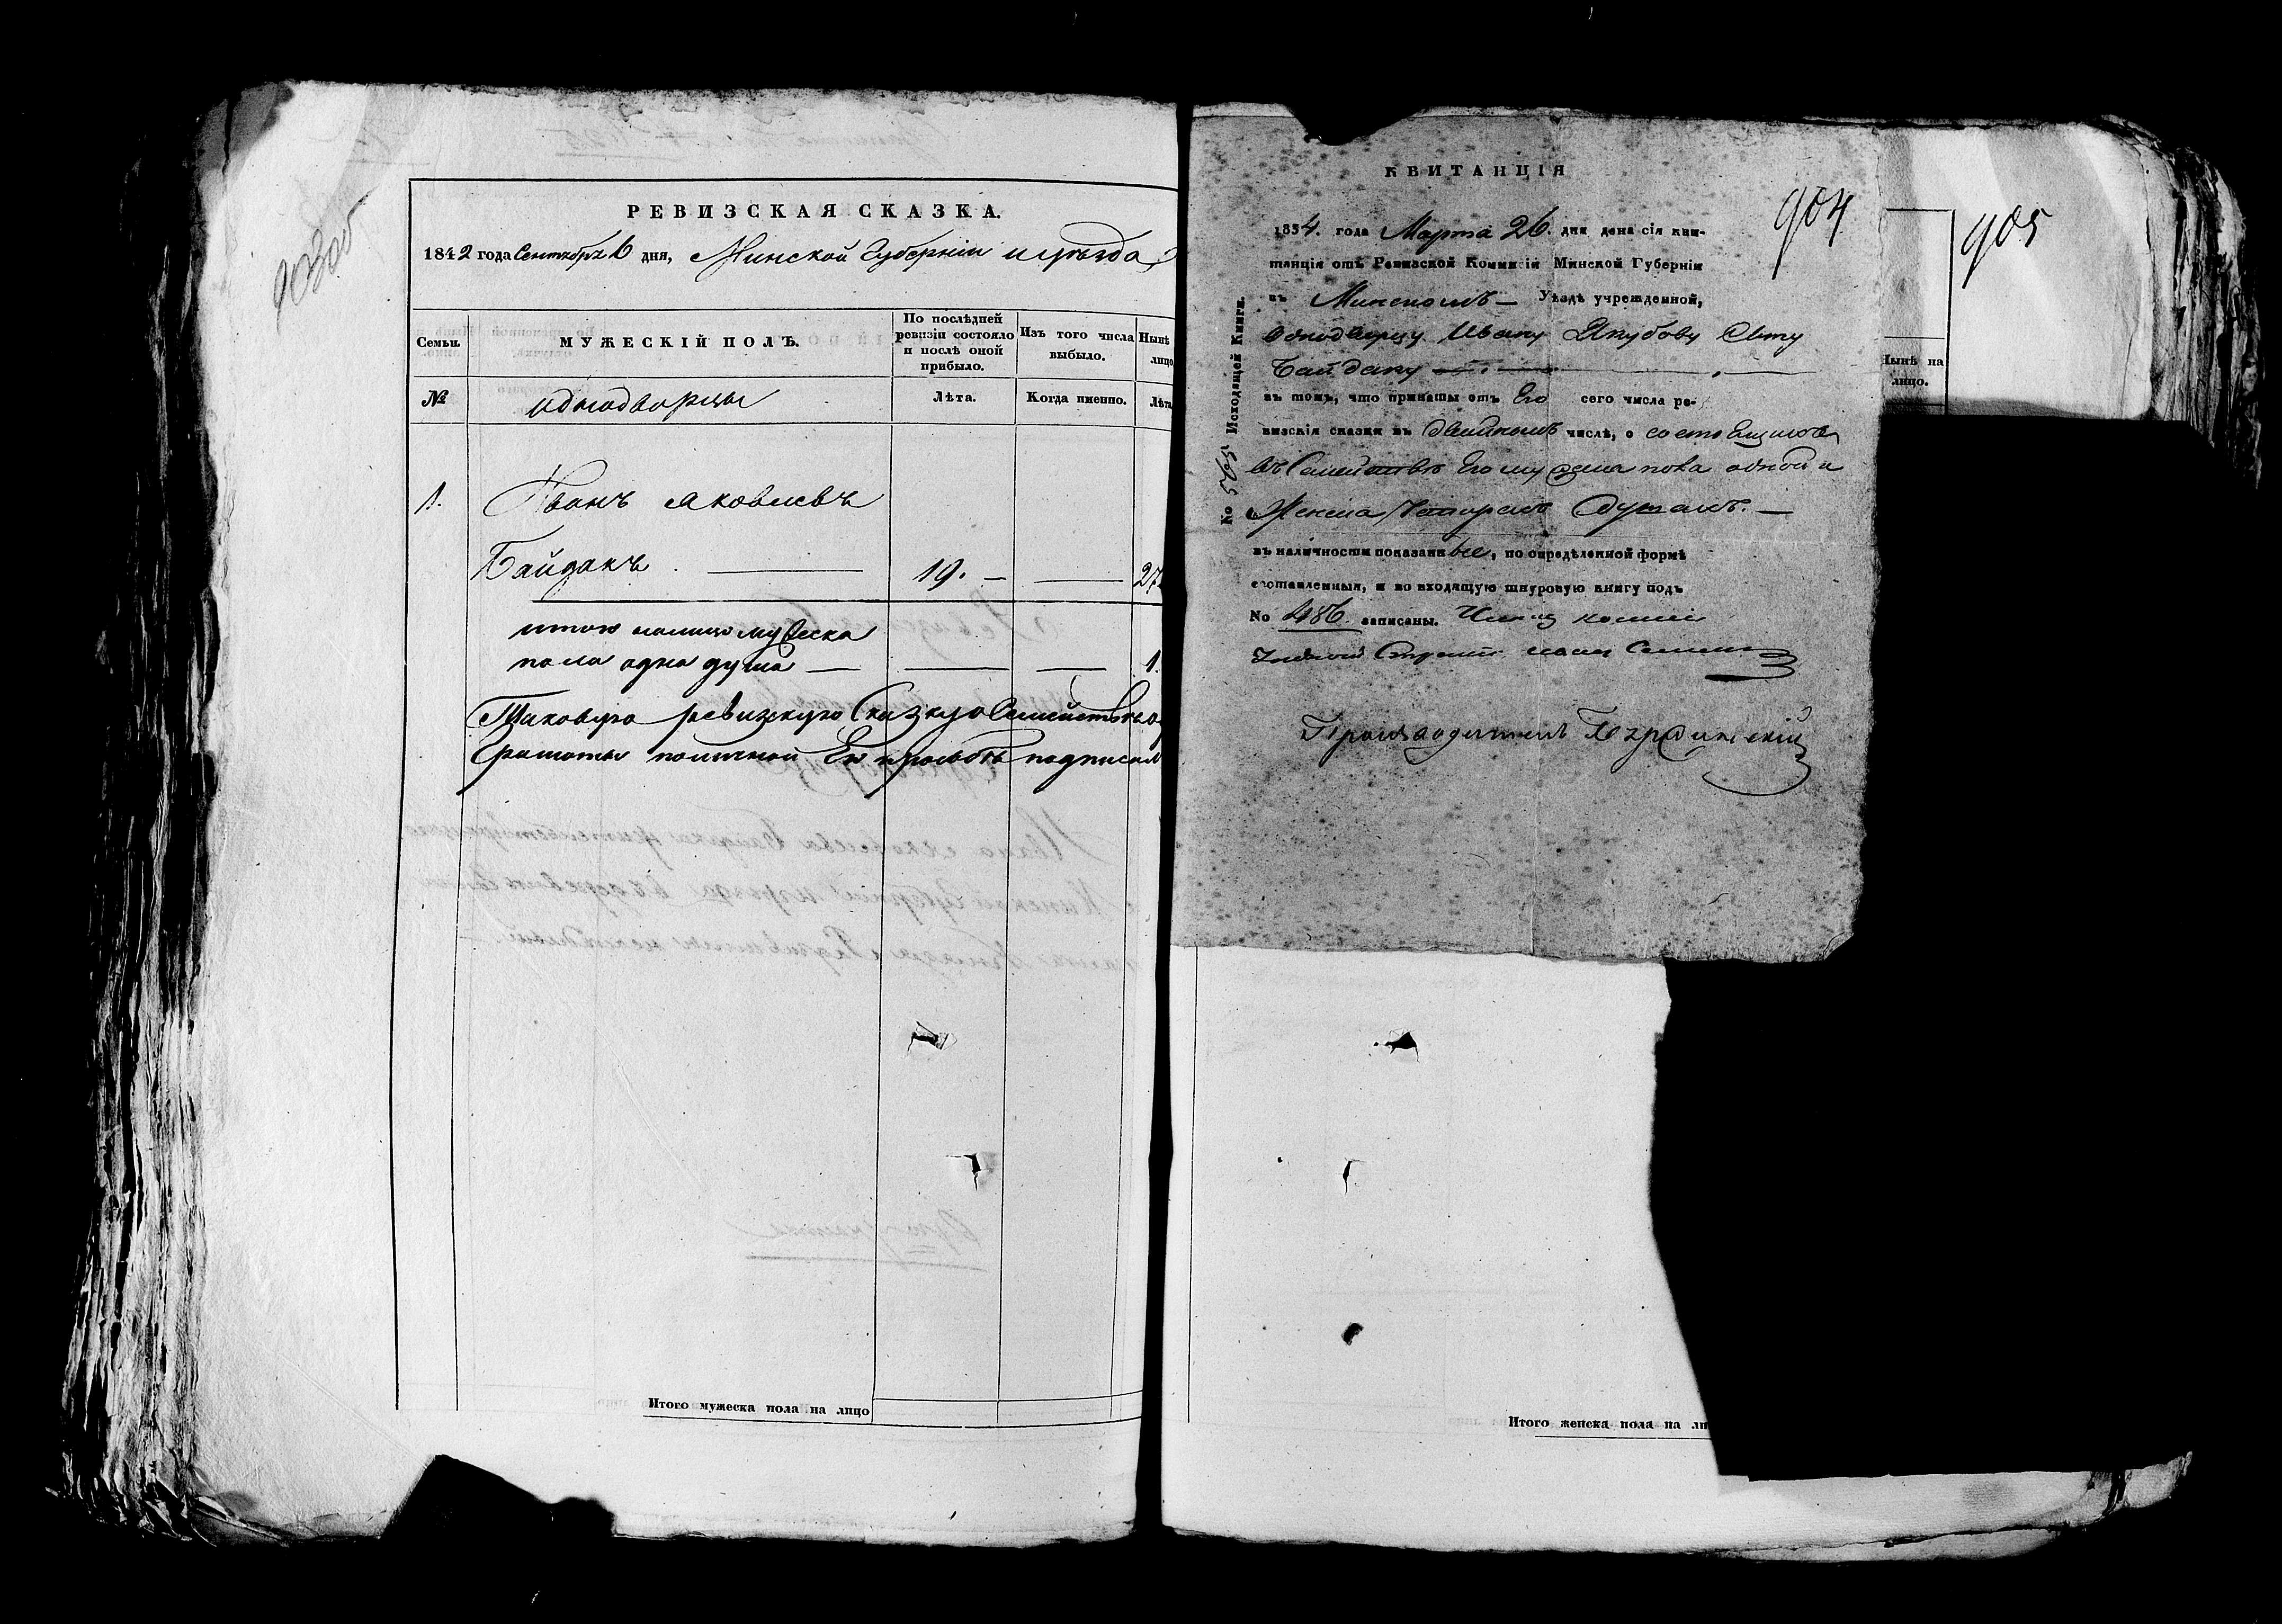 903об
РЕВИЗСКАЯ СКАЗКА.
1842 года Сентября 6 дня, Минской Губерніи и уѣзда
Семьи.
МУЖЕСКІЙ ПОЛЪ.
По послѣдней ревизіи состояло и послѣ оной прибыло.
Изъ того числа выбыло.
Нынѣ лицо
№
однодворцы
Лѣта.
Когда именно.
Лѣта
1.
Иванъ Яковлевъ
Байдакъ. — 19. — — 27
итого налицо мужеска
пола одна душа — — — 1.
Таковую ревизкую Сказку о Семействѣ
Грамоты польской Его прозьбѣ подписал
Итого мужеска пола на лицо
КВИТАНЦІЯ
904
1834. года Марта 26. дня дана сія кви-
танція отъ Ревизской Коммисіи Минской Губерніи
въ Минскомъ — Уѣздѣ учрежденной,
Однодворцу Ивану Якубову Сыну
Байдаку
въ томъ, что приняты отъ Его сего числа ре-
визскія сказки въ двойномъ числѣ, о состоящихъ
въ Семействѣ Его мужеска пола одной и
Женска Четырехъ Душахъ. —
въ наличности показани все, по опредѣленной формѣ
составленныя, и во входящую шнуровую книгу подъ
No 486. записаны.
Производитель
No 565 Исходящей Книги.
905
Нынѣ на лицо.
Итого женска пола на ли